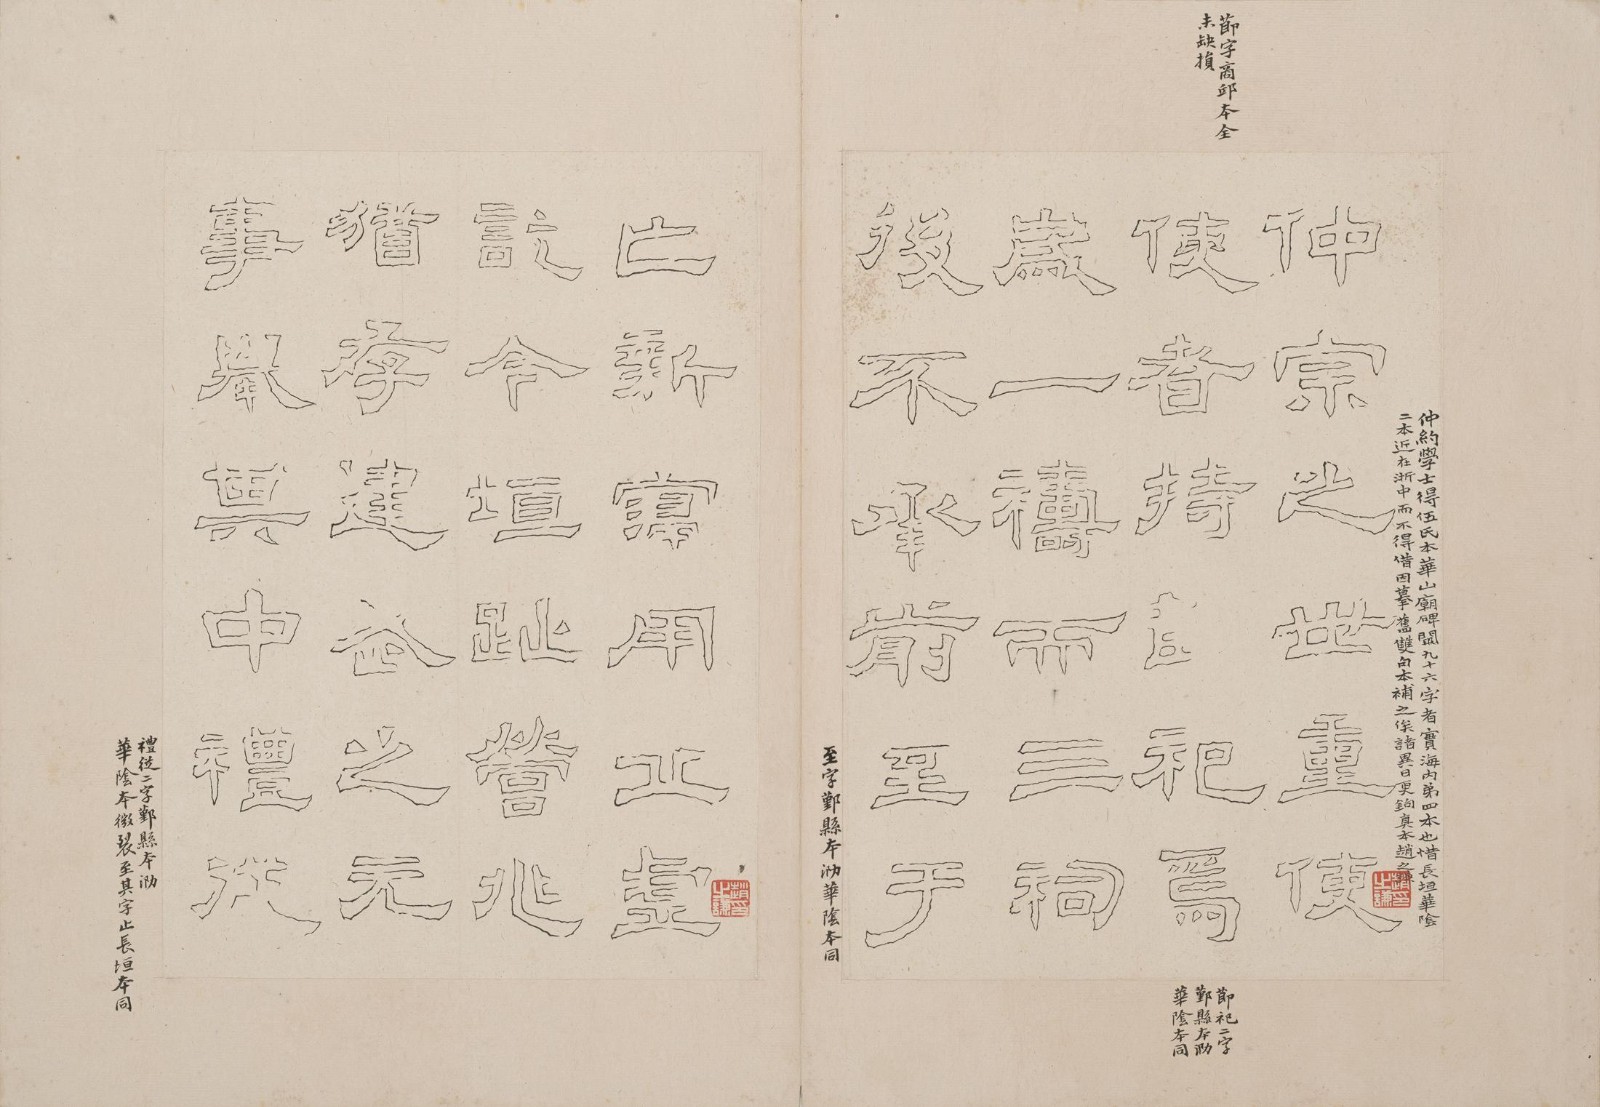 節字商邱本全
未缺損
仲約學士得伍氏本華山廟碑闕九十六字者實海內第四本也惜長垣華陰
二本近在浙中而不得借因摹舊雙勾本補之俟諸異日更鉤真本趙之謙
趙之謙印
仲宗之世重使
使者持節祀焉
歲一禱而三祠
後不承前至于
節祀二字
鄞縣本泐
華陰本同
至字鄞縣本泐華陰本同
亡新寖用丘虛
趙之謙印
訖今垣趾營兆
猶存建武之元
事舉其中禮從
禮從二字鄞縣本泐
華陰本微裂至其字止長垣本同